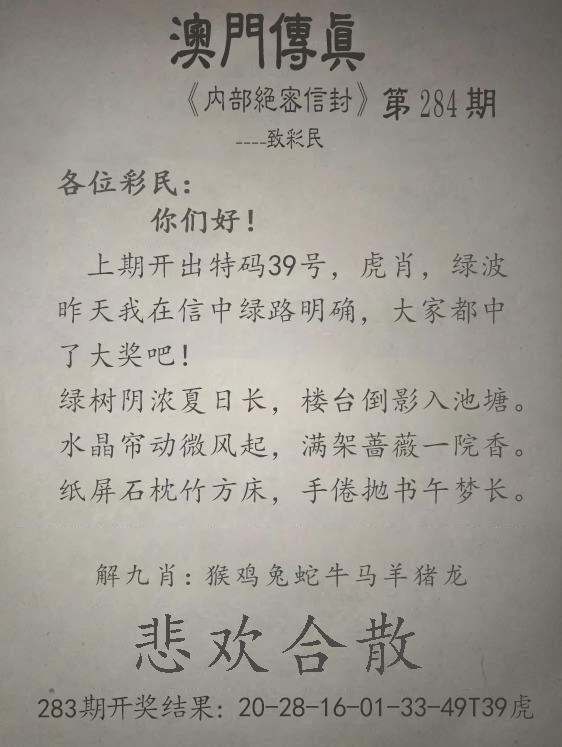 澳門傳眞
《内部絕密信封》第284期
----致彩民
各位彩民：
你们好！
上期开出特码39号，虎肖，绿波
昨天我在信中绿路明确，大家都中
了大奖吧！
绿树阴浓夏日长，楼台倒影入池塘。
水晶帘动微风起，满架蔷薇一院香。
纸屏石枕竹方床，手倦抛书午梦长。
解九肖：猴鸡兔蛇牛马羊猪龙
悲欢合散
283期开奖结果：20-28-16-01-33-49T39虎